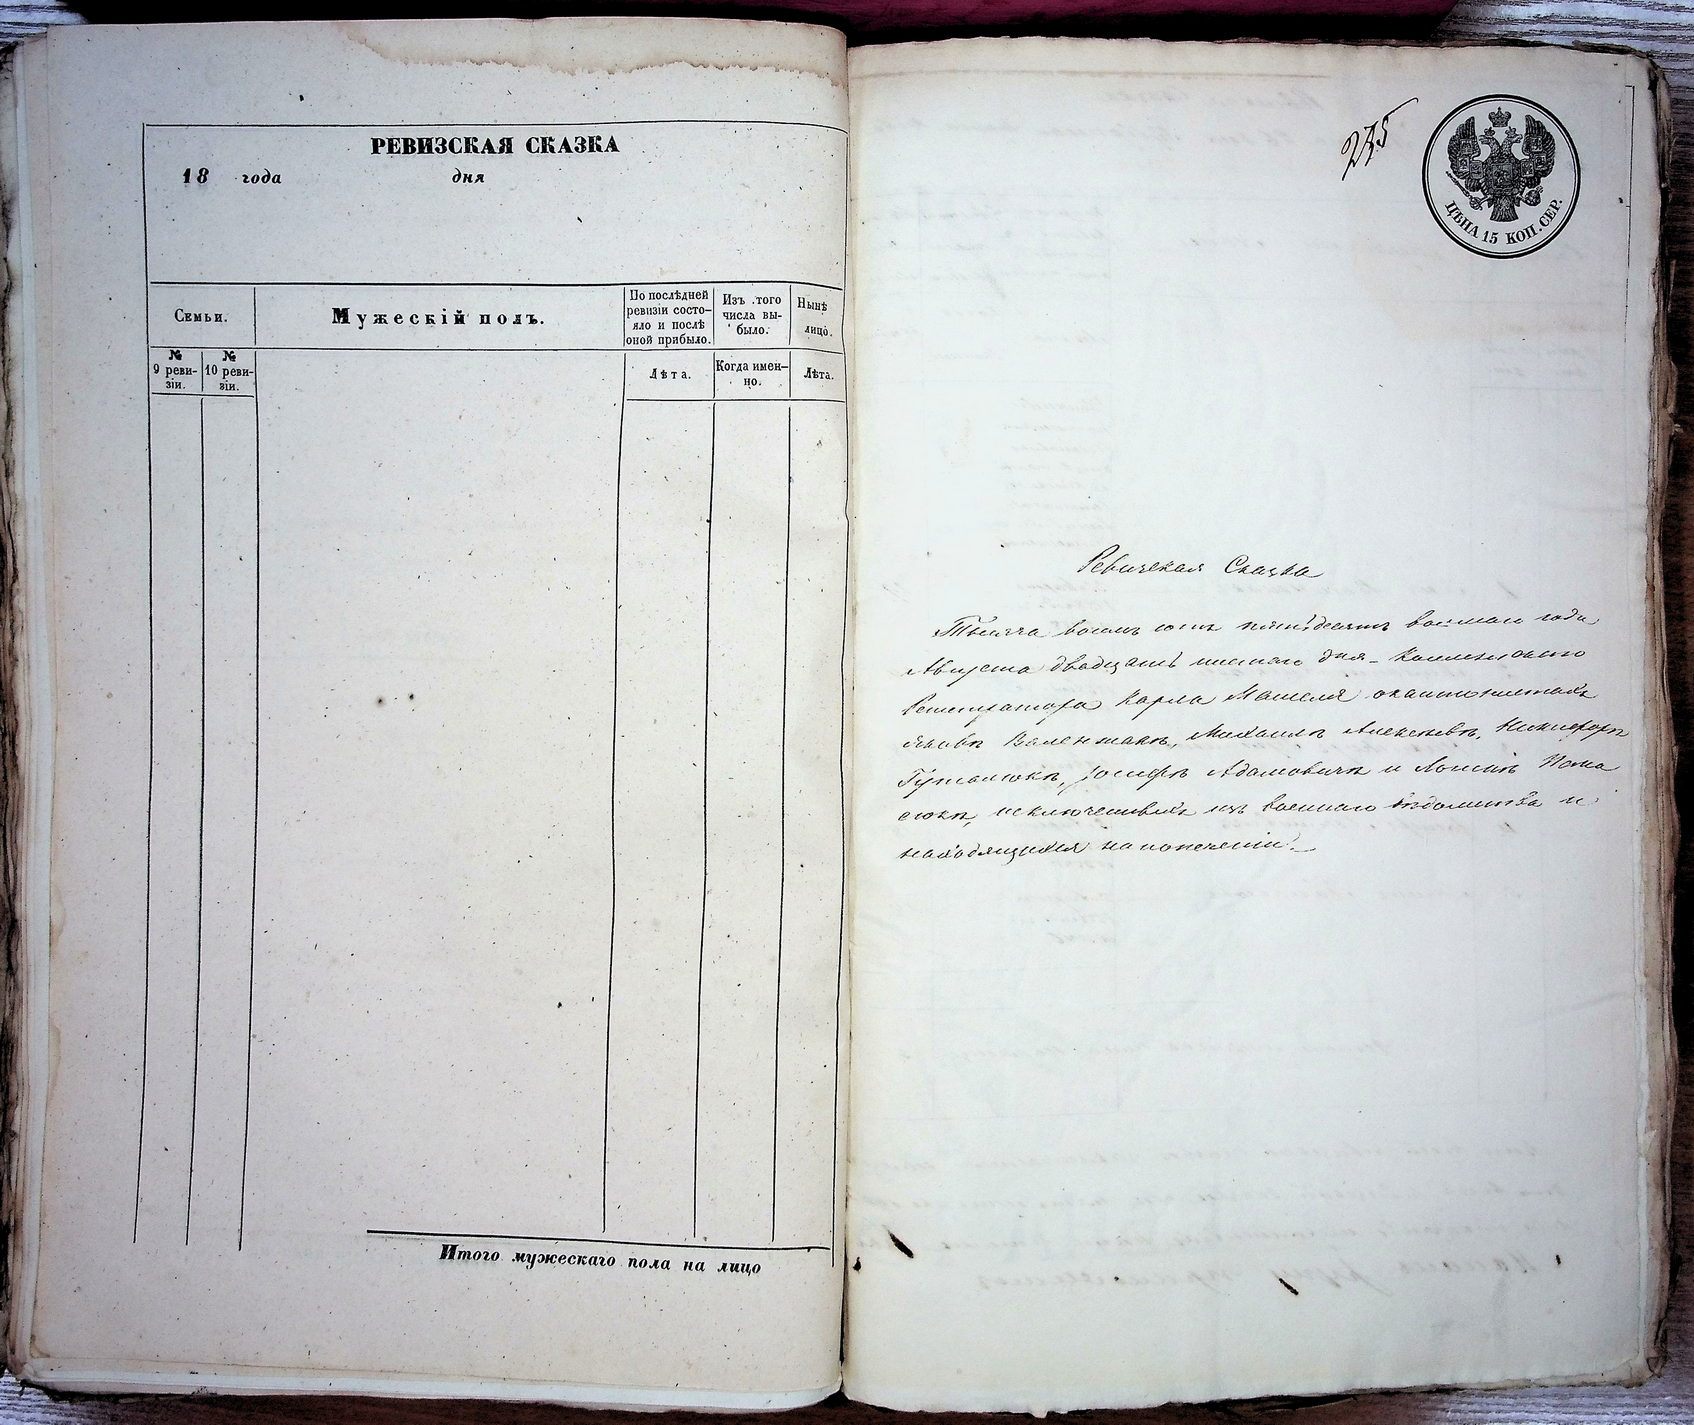 РЕВИЗСКАЯ СКАЗКА
18 года дня
Семьи.
Мужескій полъ.
По послѣдней ревизіи состо-
яло и послѣ
оной прибыло.
Изъ того
числа вы-
было.
Нынѣ
лицо.
№
9 реви-
зіи.
№
10 реви-
зіи.
Лѣта.
Когда имен-
но.
Лѣта.
Итого мужескаго пола на лицо
235
ЦѢНА 15 КОП. СЕР.
Ревижская Сказка
Тысяча восемь сотъ пятьдесятъ восьмаго года
Августа двадцать шестаго дня - Коллежскаго
Регистратора Карла
Яковъ Валентакъ, Михаилъ Алексѣевъ, Никифоръ
Іосифъ Адамовичъ и Логинъ
исключенныхъ изъ военнаго вѣдомства и
находящихся на попеченіи.